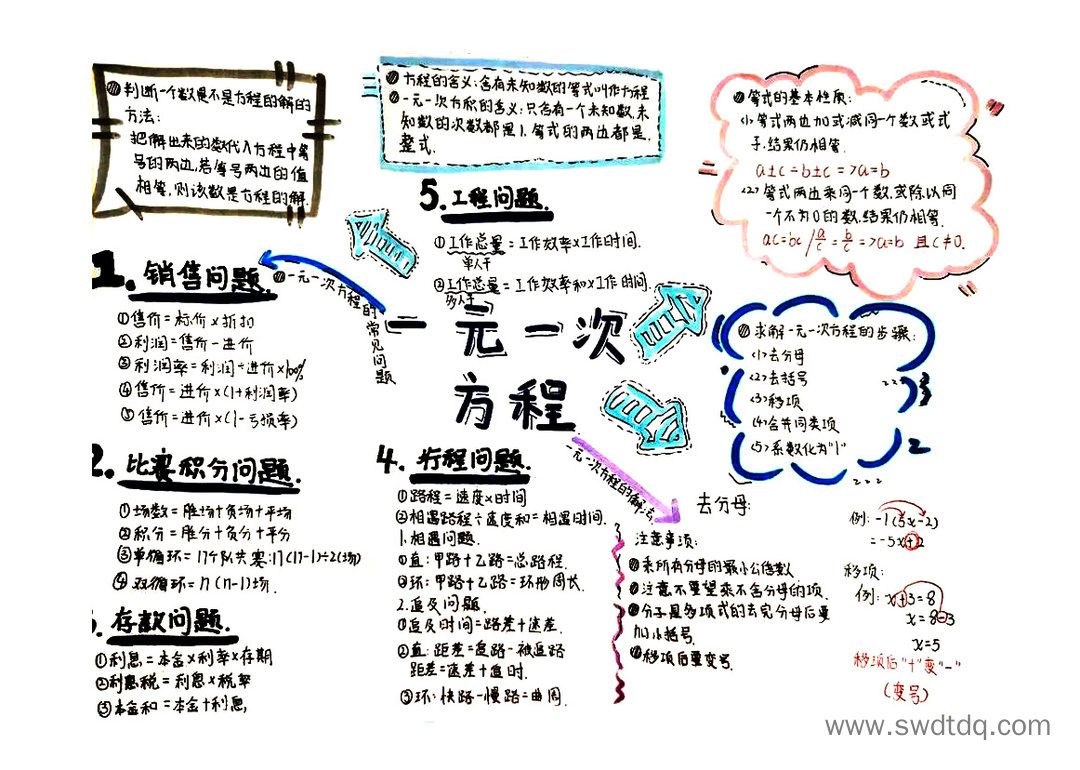 判断一个数是不是方程的解的
方法:
把解出来的数代入方程中等
号的两边,若等号两边的值
相等,则该数是方程的解.
方程的含义:含有未知数的等式叫作方程
一元一次方程的含义:只含有一个未知数,未
知数的次数都是1.等式的两边都是
整式.
等式的基本性质:
(1)等式两边加或减同一个数或式
子,结果仍相等.
a±c=b±c=>a=b
(2)等式两边乘同一个数,或除以同
一个不为0的数,结果仍相等.
ac=bc/a/c=b/c=>a=b 且c≠0.
5.工程问题.
①工作总量=工作效率×工作时间.
单人干
②工作总量=工作效率和×工作时间.
多人干
1.销售问题.
一元一次方程的常见问题
①售价=标价×折扣
②利润=售价-进价
③利润率=利润÷进价×100%
④售价=进价×(1+利润率)
⑤售价=进价×(1-亏损率)
一元一次
方程
求解一元一次方程的步骤:
(1)去分母
(2)去括号
(3)移项
(4)合并同类项
(5)系数化为"1"
2.比赛积分问题.
①场数=胜场+负场+平场
②积分=胜分+负分+平分
③单循环=n个队共赛:n(n-1)÷2(场)
④双循环=n(n-1)场.
存款问题.
①利息=本金×利率×存期
②利息税=利息×税率
③本金和=本金+利息,
4.行程问题.
①路程=速度×时间
②相遇路程÷速度和=相遇时间.
1.相遇问题.
①直:甲路+乙路=总路程.
②环:甲路+乙路=环形周长.
2.追及问题.
①追及时间=路差÷速差.
②直:距差=追路-被追路
距差=速差+追时.
③环:快路-慢路=曲周.
一元一次方程的解法
去分母:
注意事项:
乘所有分母的最小公倍数
注意不要望乘不含分母的项.
分子是多项式的去完分母后要
加小括号
移项后要变号.
例:-1(5x-2)
=-5x+2
移项:
例:x+3=8
x=8-3
x=5
移项后"+"变"-"
(变号)
www.swdtdq.com